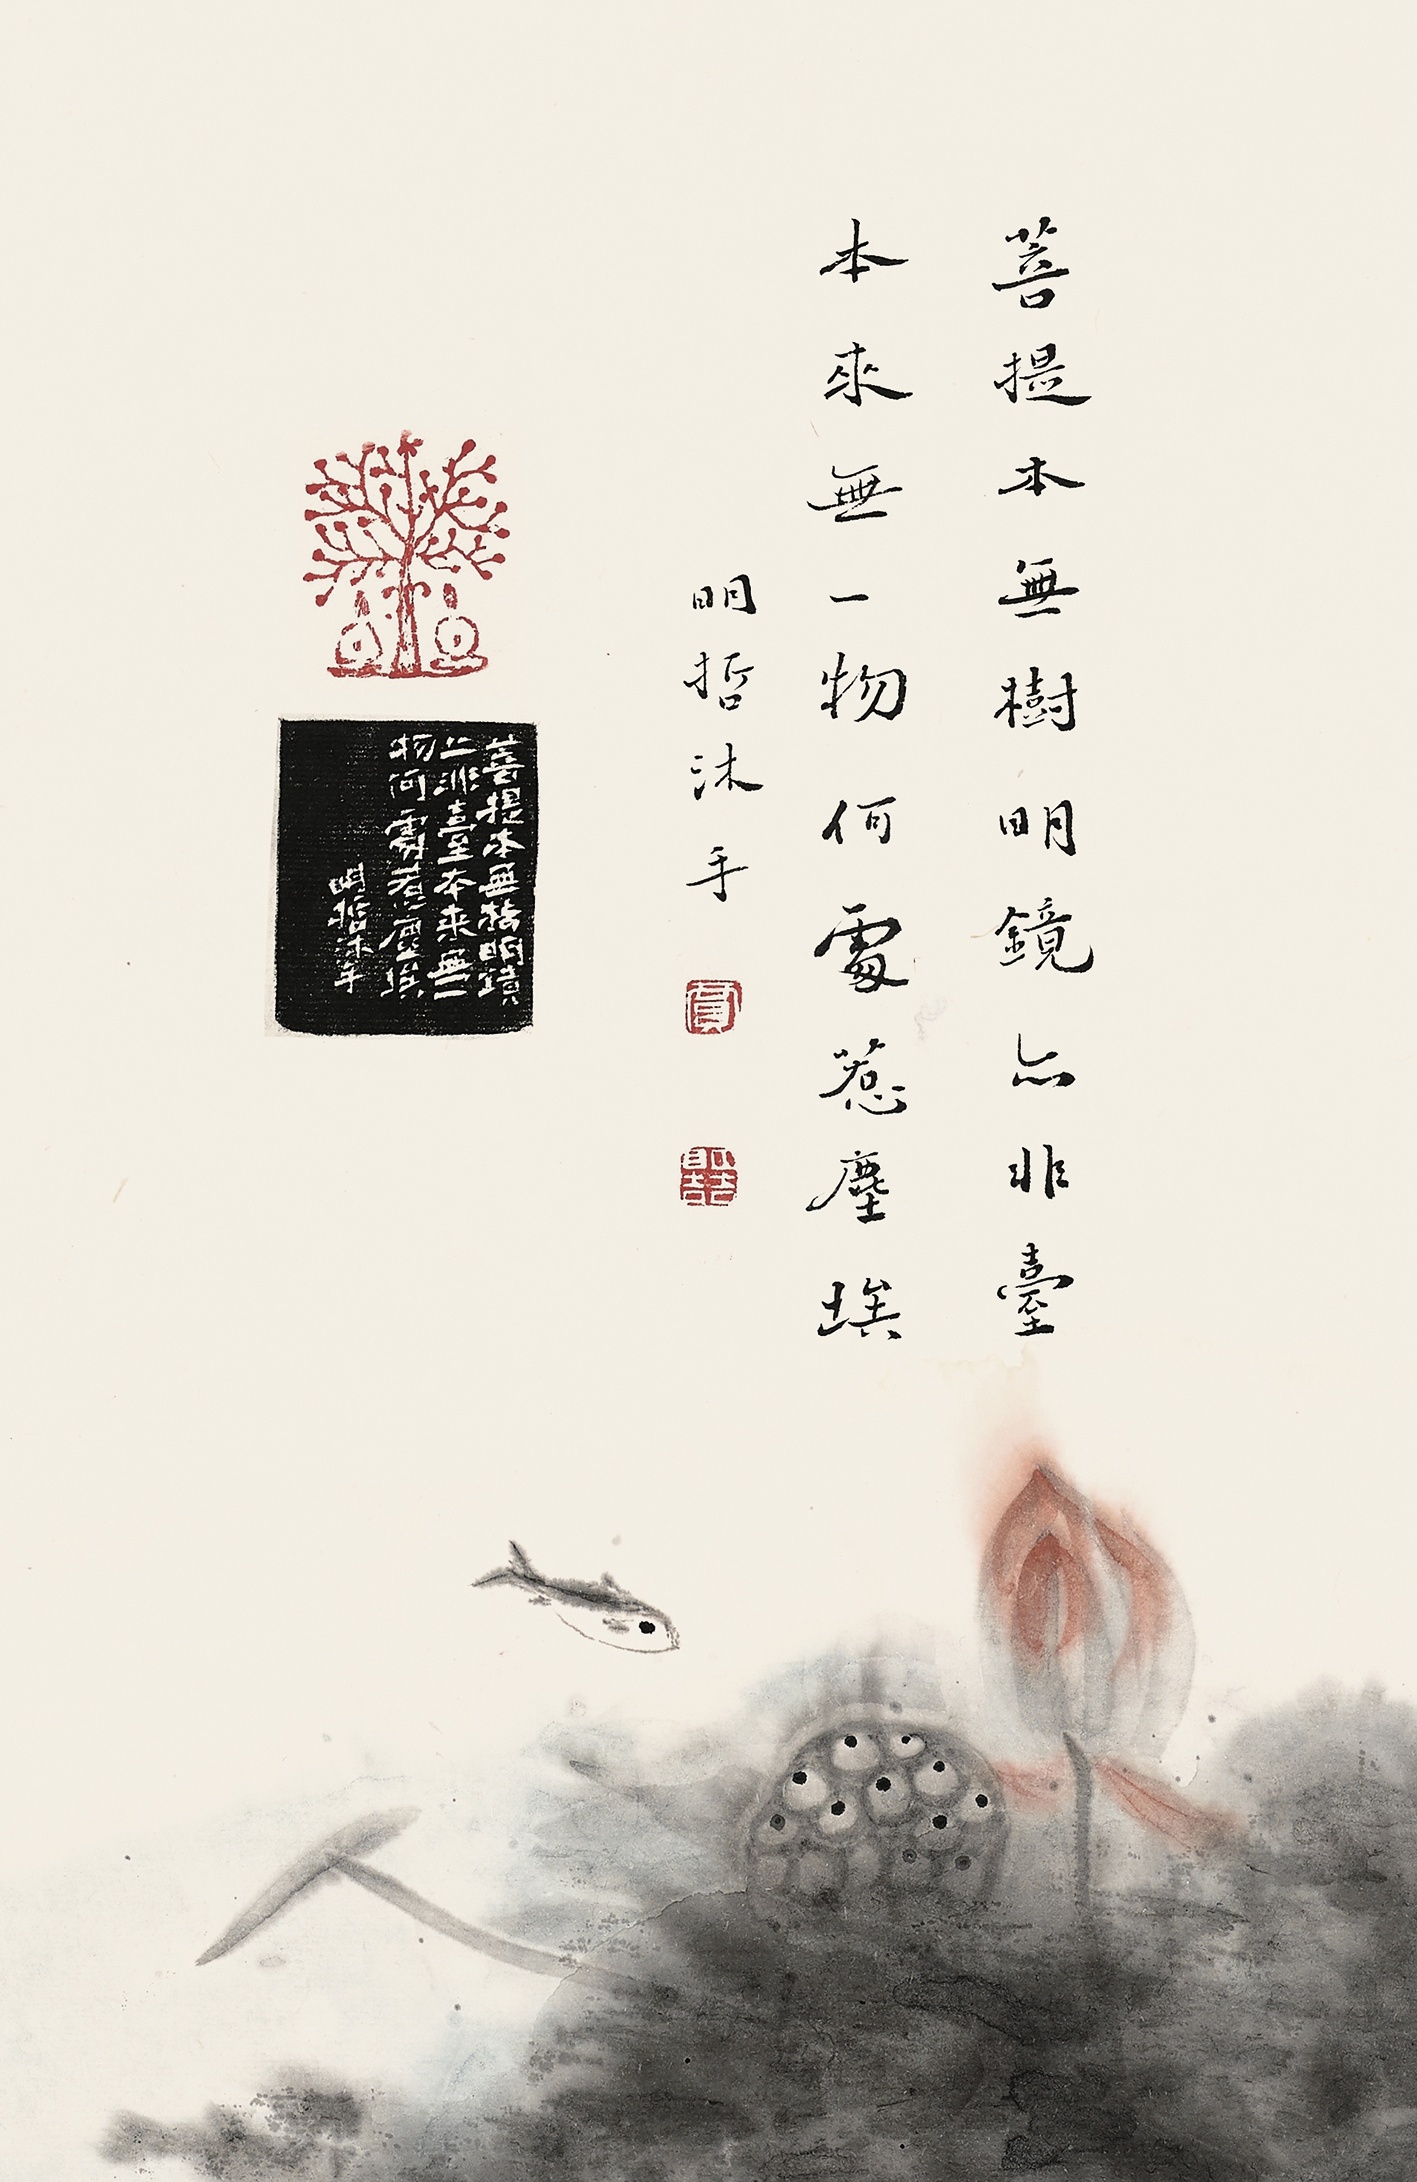 菩提本無樹明鏡亦非臺
本來無一物何處惹塵埃
明哲沐手
菩提本無樹明鏡
亦非臺本來無一
物何處惹塵埃
明哲沐手